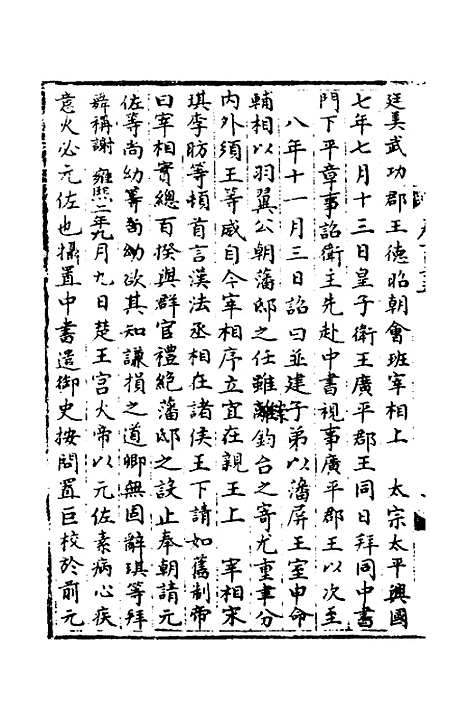 廷美武功郡王德昭朝會班宰相上　太宗太平興國
七年七月十三日皇子衛王廣平郡王同日拜同中書
門下平章事詔衛王先赴中書視事廣平郡王以次至
八年十一月三日詔曰並建子弟以藩屏王室申命
輔相以羽翼公朝藩邸之任雖離鈞台之寄尤重聿分
内外須王等威自今宰相序立宜在親王上　宰相宋
琪李昉等頓首言漢法丞相在諸侯王下請如舊制帝
曰宰相實總百揆與群官禮絶藩邸之設止奉朝請元
佐等尚幼等尚幼欲其知謙損之道卿無固辭琪等拜
舜稱謝　雍熙二年九月九日楚王宫火帝以元佐素病心疾
意火必元佐也攝置中書遣御史按問置巨校於前元